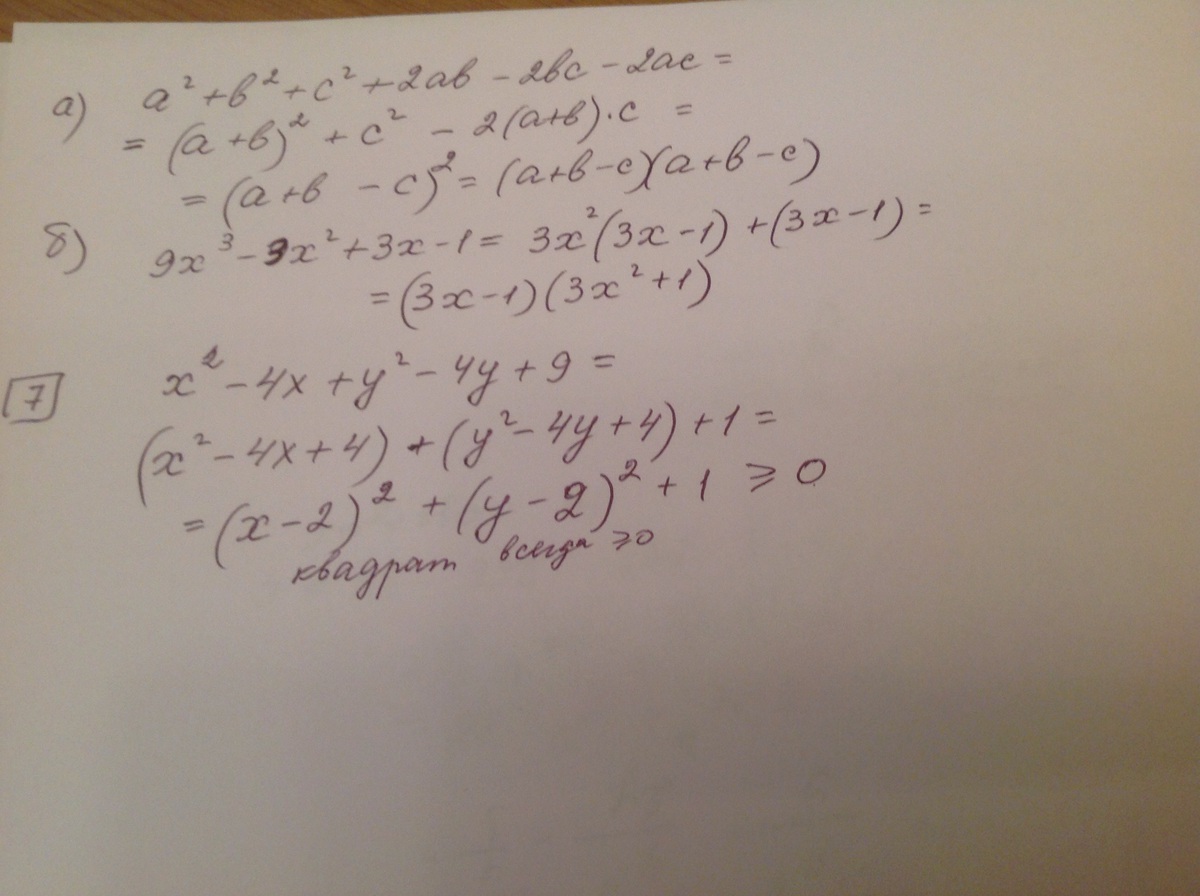 а) a² + b² + c² + 2ab - 2bc - 2ac =
= (a + b)² + c² - 2(a+b)·c =
= (a+b - c)² = (a+b-c)(a+b-c)
б) 9x³ - 3x² + 3x - 1 = 3x²(3x - 1) + (3x - 1) =
= (3x - 1)(3x² + 1)
7 x² - 4x + y² - 4y + 9 =
(x² - 4x + 4) + (y² - 4y + 4) + 1 =
= (x - 2)² + (y - 2)² + 1 ⩾ 0
квадрат всегда ⩾0